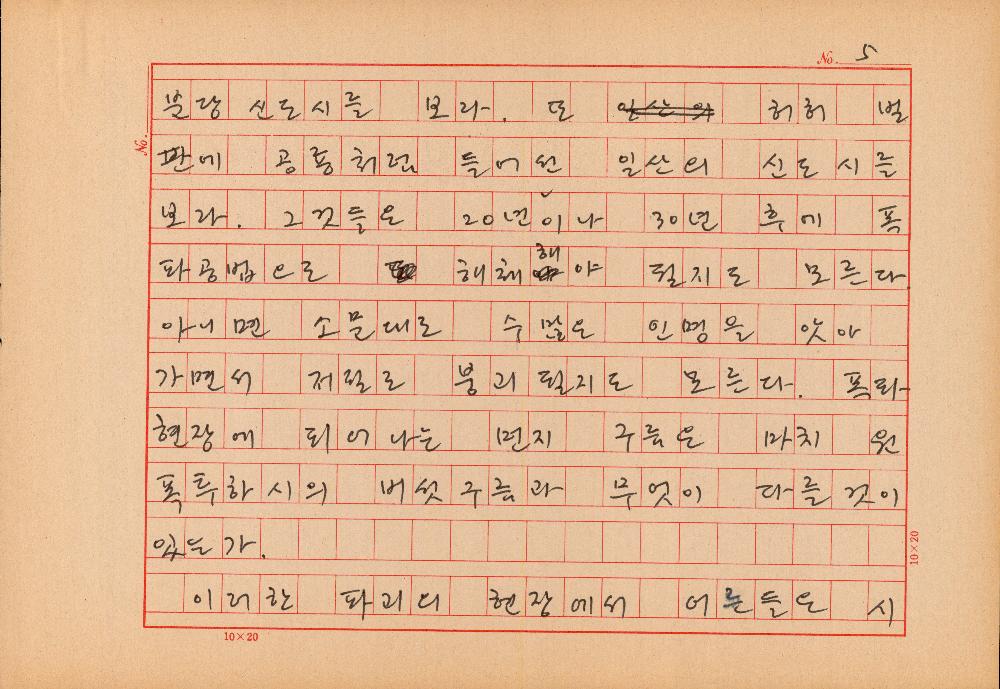 No. 5
분당 신도시를 보라. 또 일산의 허허 벌
No.
판에 공룡처럼 들어선 일산의 신도시를
보라. 그것들은 20년이나 30년 후에 폭
파공법으로 해체해야 될지도 모른다
아니면 소문대로 수많은 인명을 앗아
가면서 저절로 붕괴될지도 모른다. 폭파
현장에 퇴어나는 먼지 구름은 마치 원
폭투하시의 버섯구름과 무엇이 다를것이
있는가.
이러한 파괴의 현장에서 어른들은 시
10×20
10×20